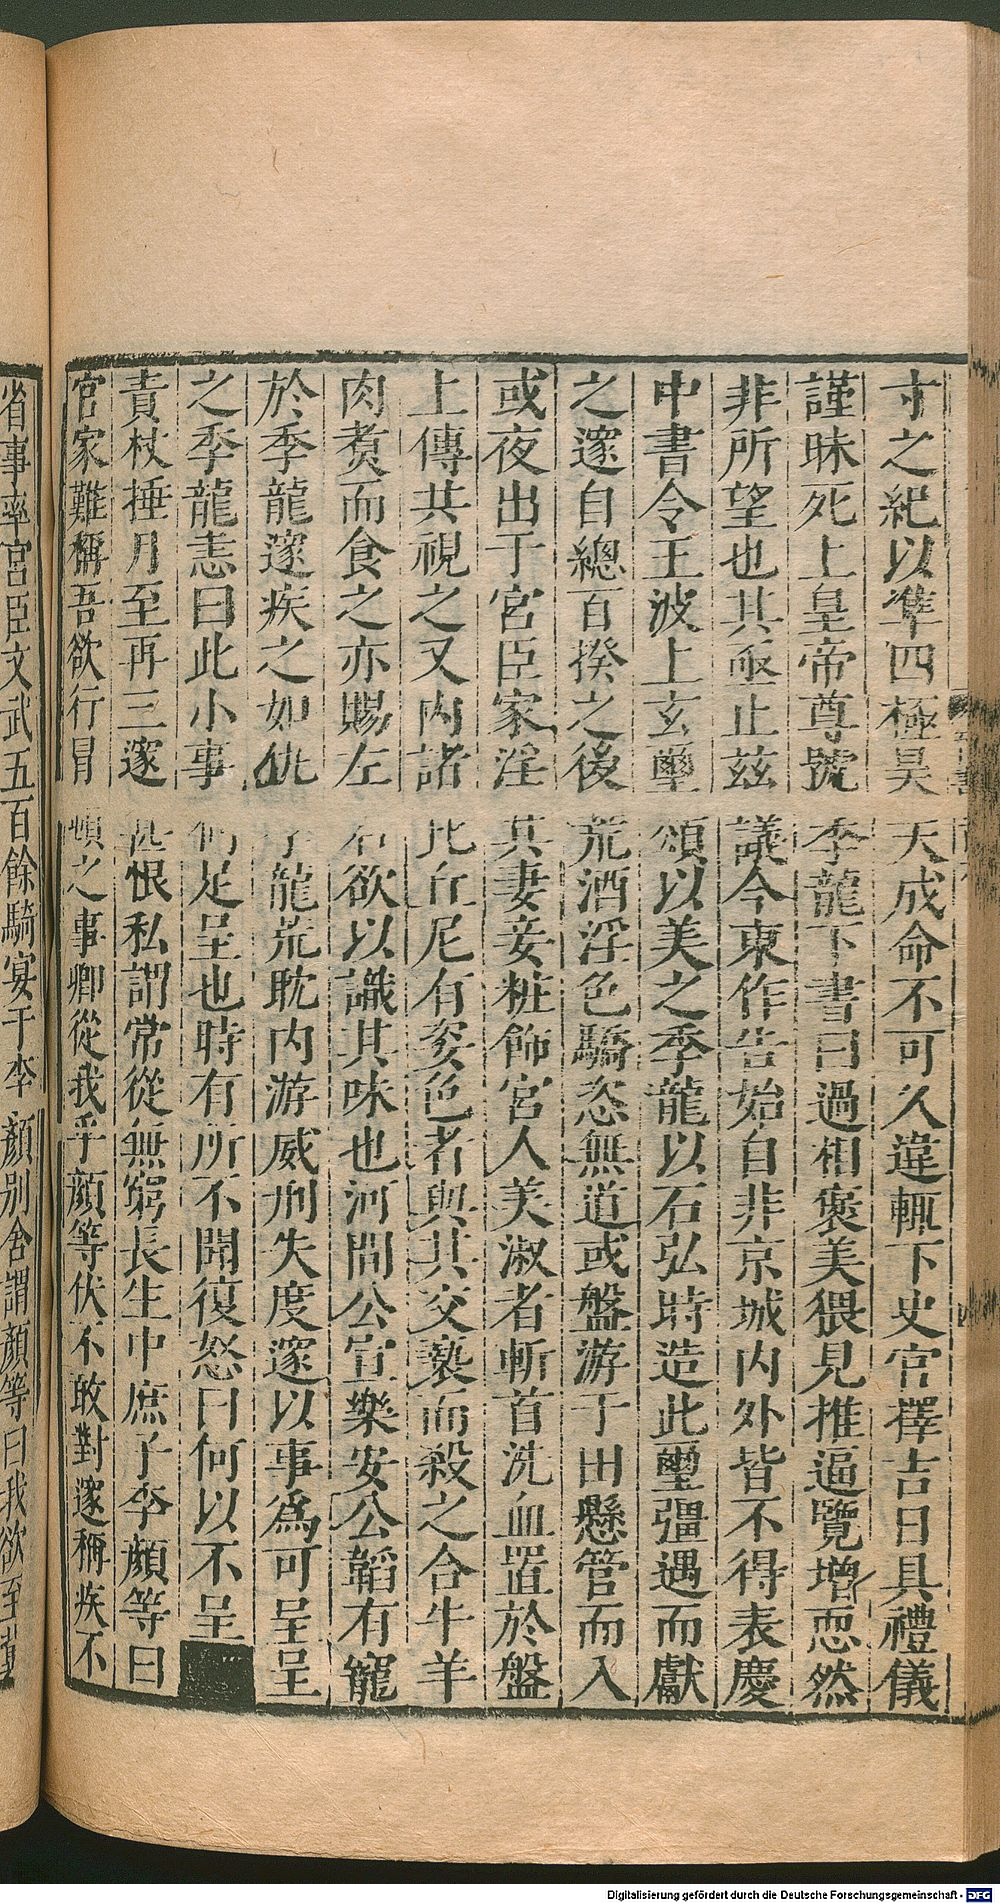 寸之紀以準四極昊天成命不可久違輒下史官擇吉日具禮儀
謹昧死上皇帝尊號季龍下書曰過相褒美猥見推逼覽增恧然
非所望也其亟止茲議今東作告始自非京城內外皆不得表慶
中書令王波上玄璽頌以美之季龍以石弘時造此璽彊遇而獻
之邃自總百揆之後荒酒淫色驕恣無道或盤游于田懸管而入
或夜出于宮臣家淫其妻妾粧飾宮人美淑者斬首洗血置於盤
上傳共視之又內諸比丘尼有姿色者與其交褻而殺之合牛羊
肉煑而食之亦賜左右欲以識其味也河間公宣樂安公韜有寵
於季龍邃疾之如仇季龍荒耽內游威刑失度邃以事爲可呈呈
之季龍恚曰此小事何足呈也時有所不聞復怒曰何以不呈
責杖捶月至再三邃甚恨私謂常從無窮長生中庶子李顏等曰
官家難稱吾欲行冒頓之事卿從我乎顏等伏不敢對邃稱疾不
省事率宮臣文武五百餘騎宴于李顏別舍謂顏等曰我欲至冀
Digitalisierung gefördert durch die Deutsche Forschungsgemeinschaft - DFG